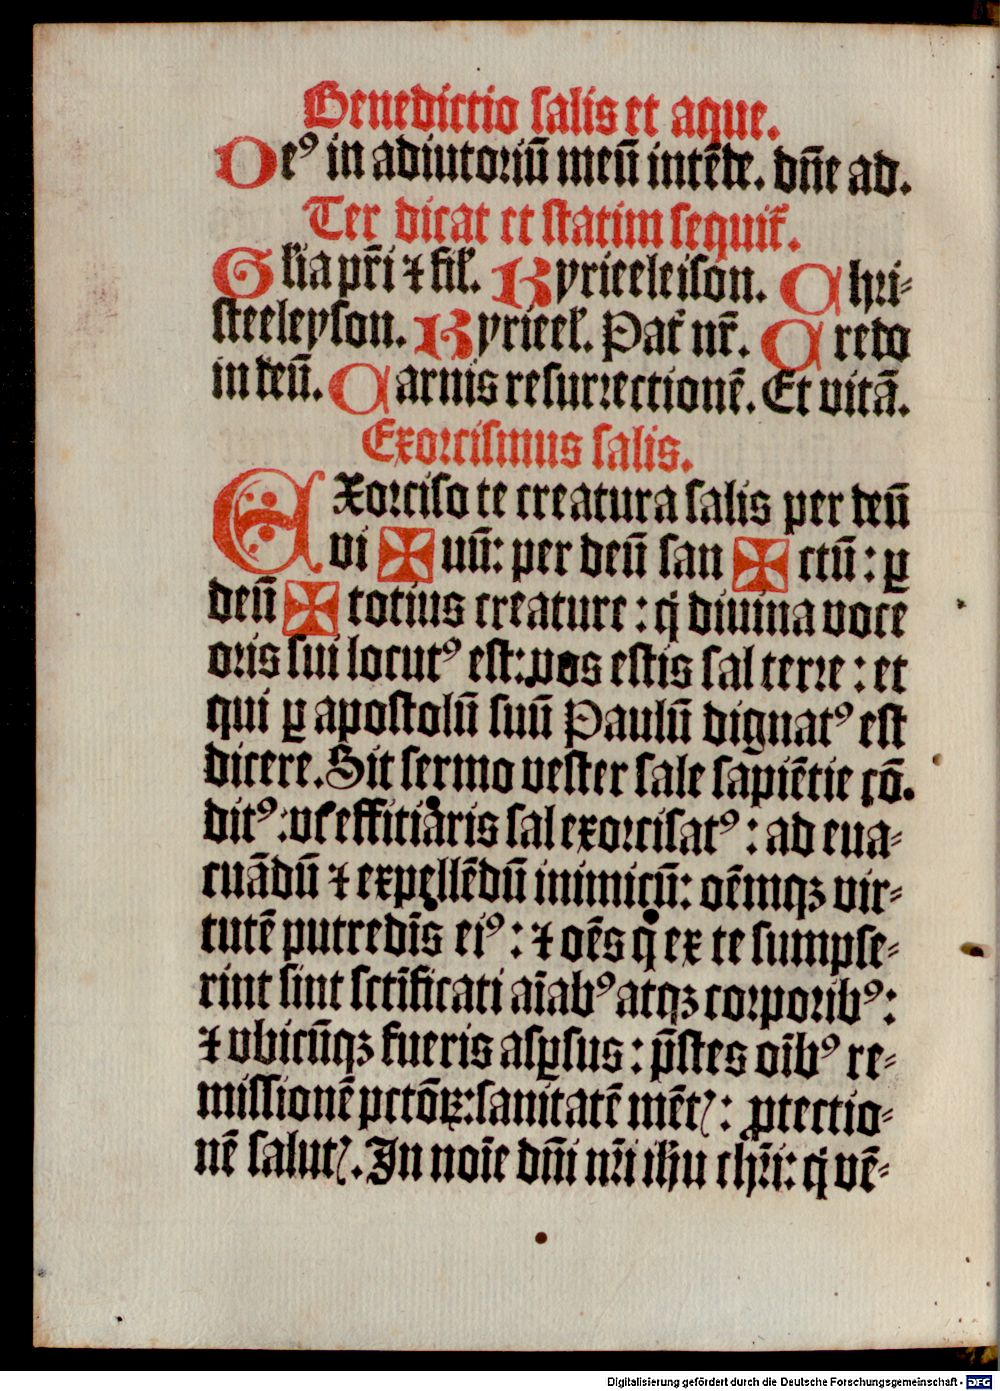 Benedictio salis et aque.
Deꝰ in adiutoriū meū intēde. dn̄e ad.
Ter dicat et statim sequit᷑.
Gl̓ia pr̄i ⁊ fil̓. Kyrieeleison. Chri⸗
steeleyson. Kyrieel̓. Pat̓ nr̄. Credo
in deū. Carnis resurrectionē. Et vitā.
Exorcismus salis.
EXorciso te creatura salis per deū
vi ✠ uū: per deū san ✠ ctū: ꝑ
deū ✠ totius creature: q̇ diuina voce
oris sui locutꝰ est: vos estis sal terre: et
qui ꝑ apostolū suū Paulū dignatꝰ est
dicere. Sit sermo vester sale sapiētie cō.
ditꝰ: vt efficiaris sal exorcisatꝰ: ad eua⸗
cuādū ⁊ expellēdū inimicū: oēmqꝫ vir⸗
tutē putredīs eiꝰ: ⁊ oēs q̇ ex te sumpse⸗
rint sint sctīficati aīabꝰ atqꝫ corporibꝰ:
⁊ vbicūqꝫ fueris aspsus: p̄stes oībꝰ re⸗
missionē pctōꝝ: sanitatē mētꝭ: ꝓtectio⸗
nē salutꝭ. In noīe dn̄i nr̄i ihu chr̄i: q̇ vē⸗
Digitalisierung gefördert durch die Deutsche Forschungsgemeinschaft - DFG